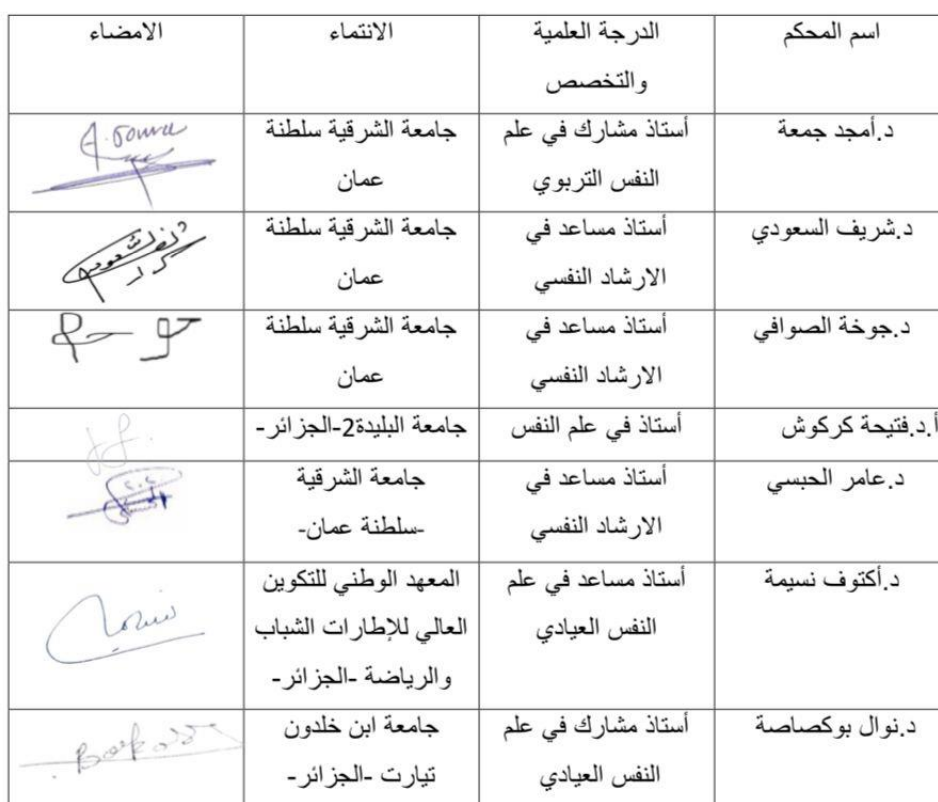 اسم المحكم
الدرجة العلمية
والتخصص
الانتماء
الامضاء
د.أمجد جمعة
أستاذ مشارك في علم
النفس التربوي
جامعة الشرقية سلطنة
عمان
د.شريف السعودي
أستاذ مساعد في
الارشاد النفسي
جامعة الشرقية سلطنة
عمان
د.جوخة الصوافي
أستاذ مساعد في
الارشاد النفسي
جامعة الشرقية سلطنة
عمان
أ.د.فتيحة كركوش
أستاذ في علم النفس
جامعة البليدة2-الجزائر-
د.عامر الحبسي
أستاذ مساعد في
الارشاد النفسي
جامعة الشرقية
-سلطنة عمان-
د.أكتوف نسيمة
أستاذ مساعد في علم
النفس العيادي
المعهد الوطني للتكوين
العالي للإطارات الشباب
والرياضة -الجزائر-
د.نوال بوكصاصة
أستاذ مشارك في علم
النفس العيادي
جامعة ابن خلدون
تيارت -الجزائر-